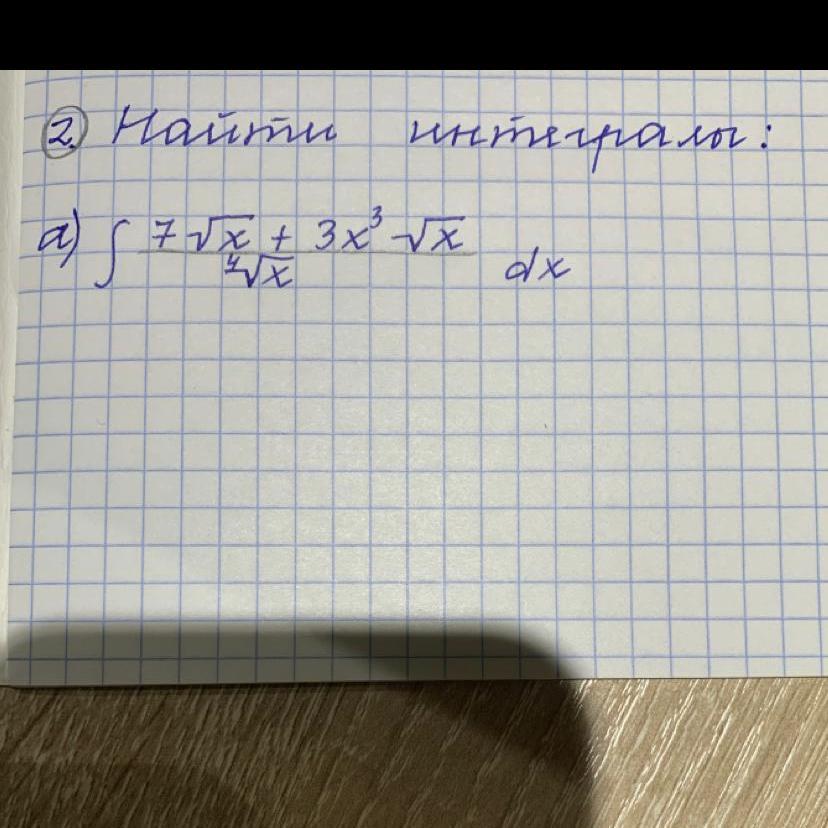 2. Найти интегралы:
а) ∫ (7√x + 3x³ - √x) / ⁴√x dx